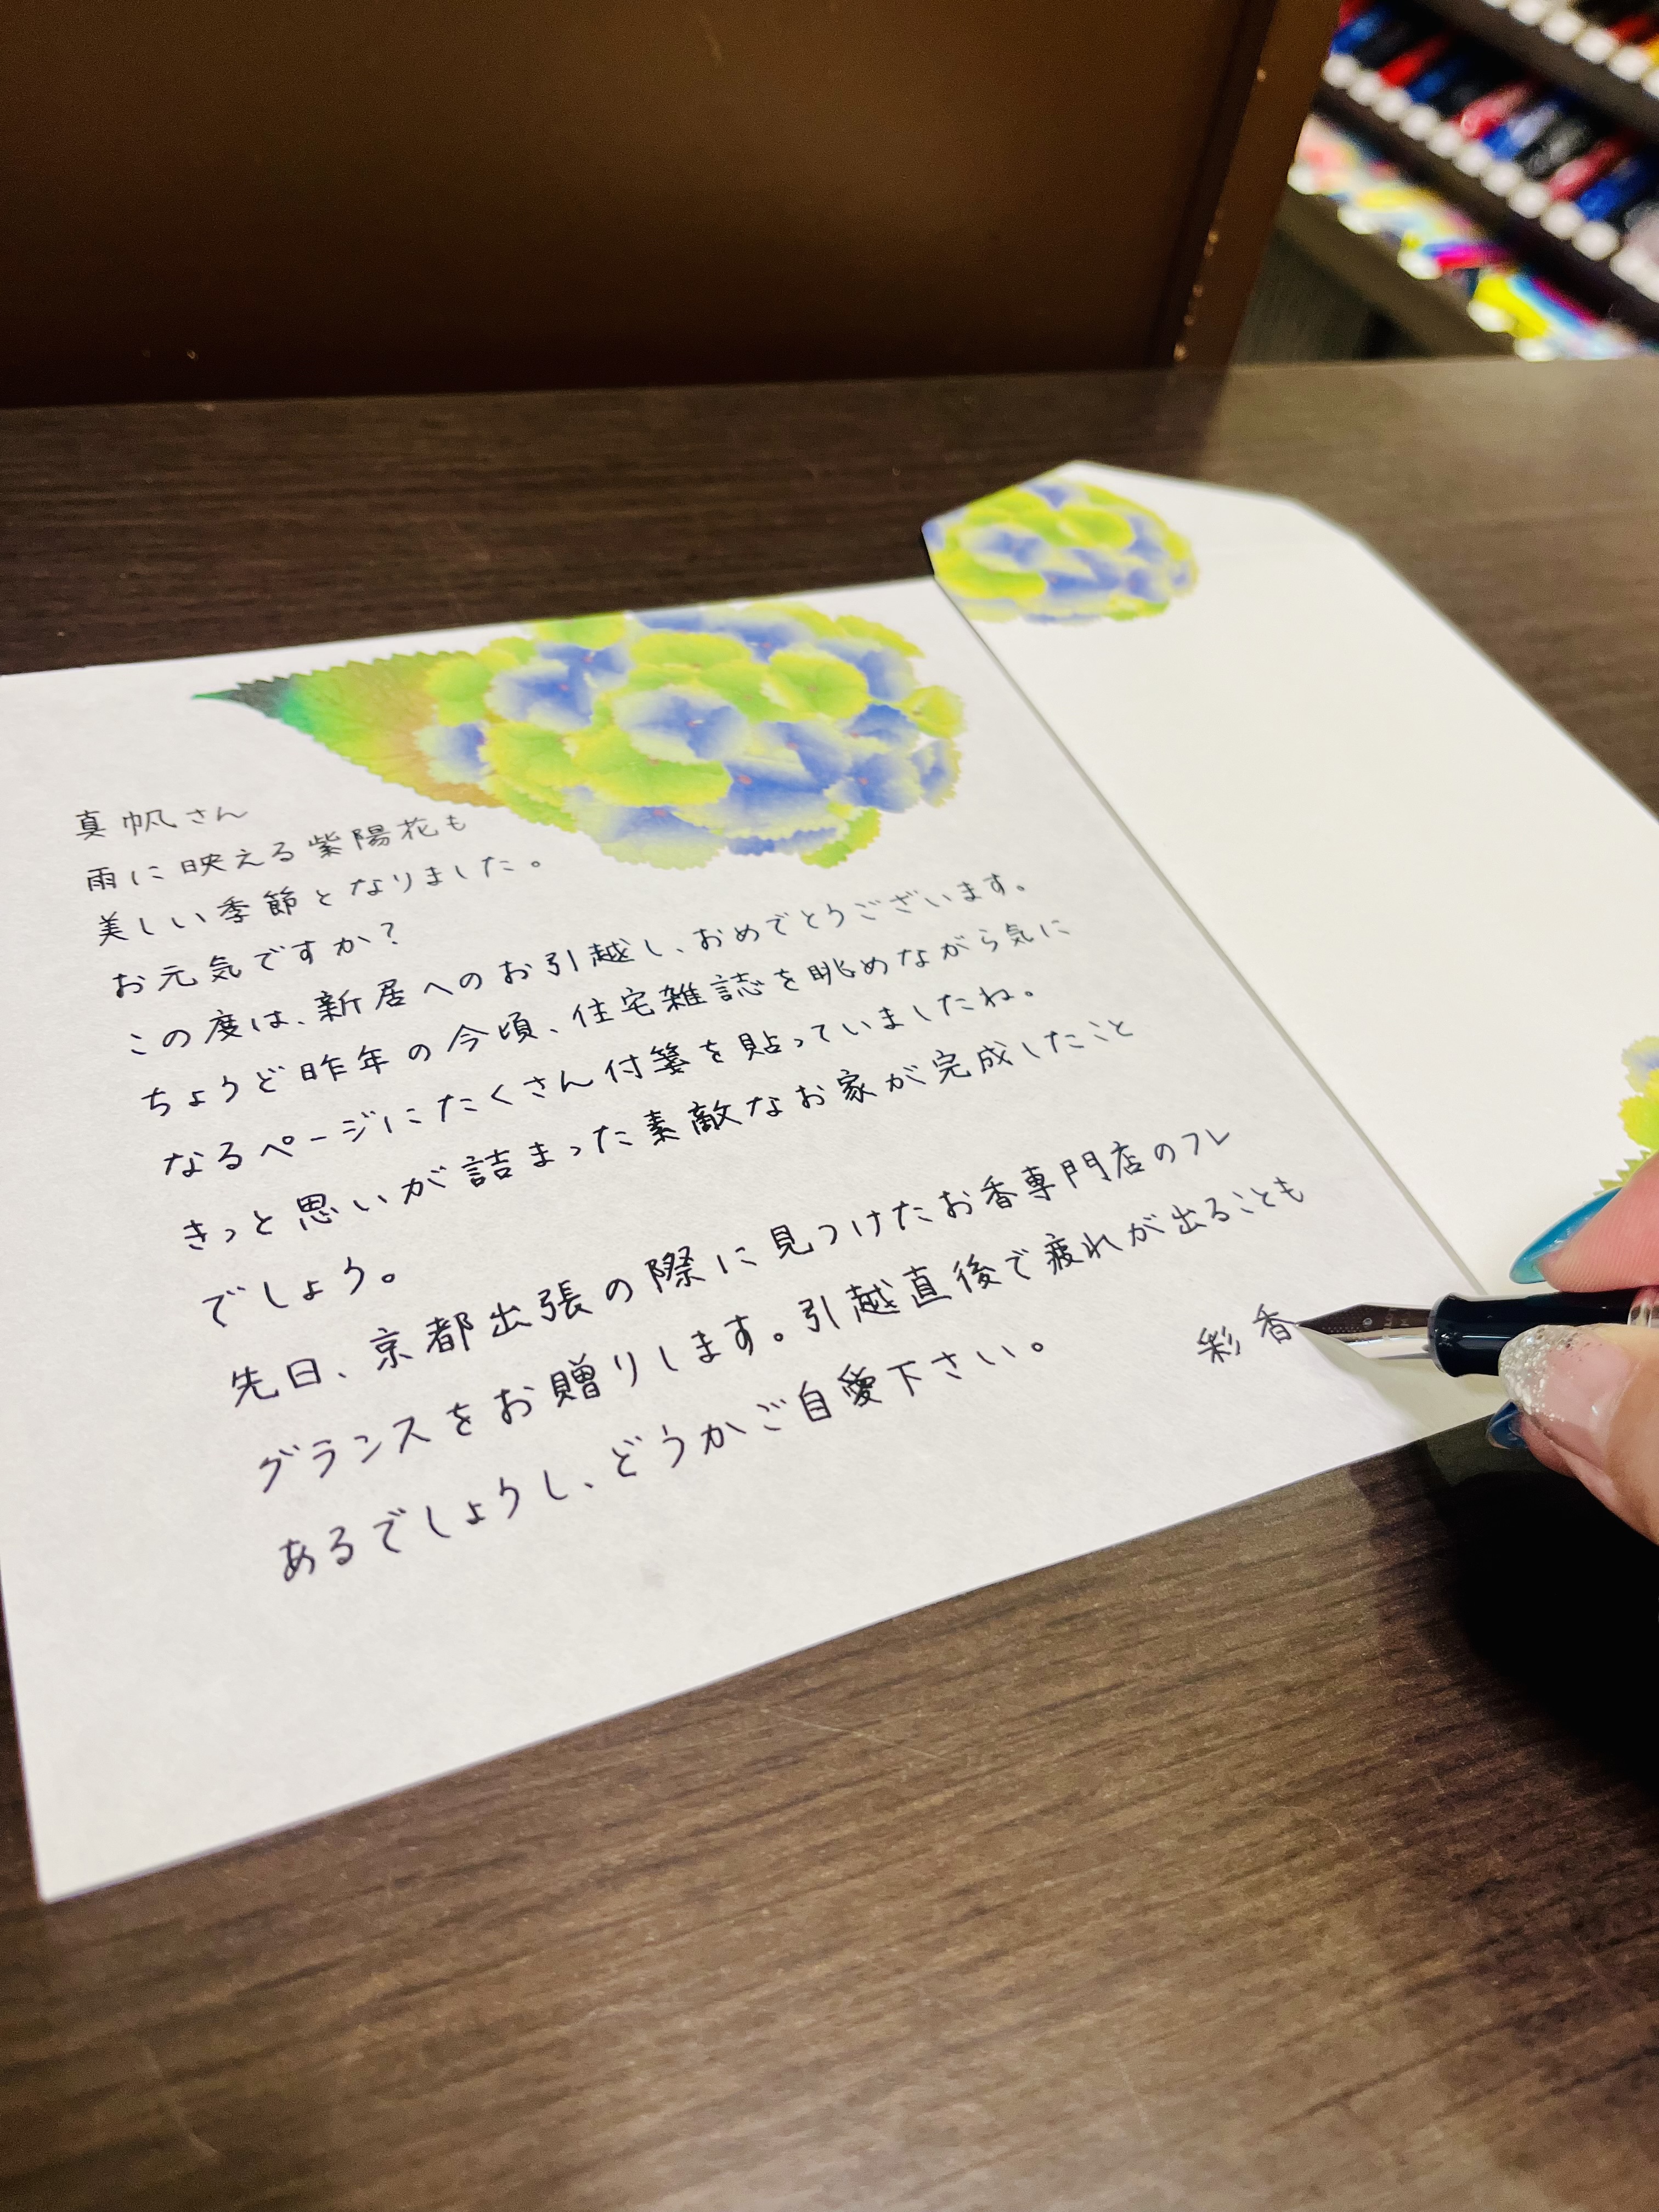 真帆さん
雨に映える紫陽花も
美しい季節となりました。
お元気ですか？
この度は、新居へのお引越し、おめでとうございます。
ちょうど昨年の今頃、住宅雑誌を眺めながら気に
なるページにたくさん付箋を貼っていましたね。
きっと思いが詰まった素敵なお家が完成したこと
でしょう。
先日、京都出張の際に見つけたお香専門店のフレ
グランスをお贈りします。引越直後で疲れが出ることも
あるでしょうし、どうかご自愛下さい。
彩香